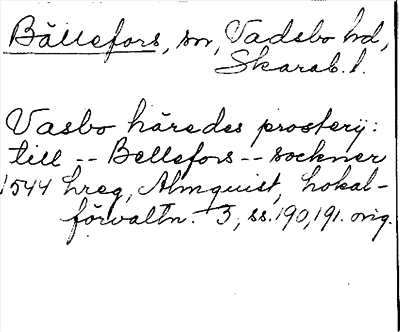 Bällefors, sn, Vadsbo hd,
Skarab. l.
Vasbo häredes prosterij:
till -- Bellefors -- sockner
1544 hreg, Almquist, Lokal-
förvaltn. 3, ss. 190, 191. orig.